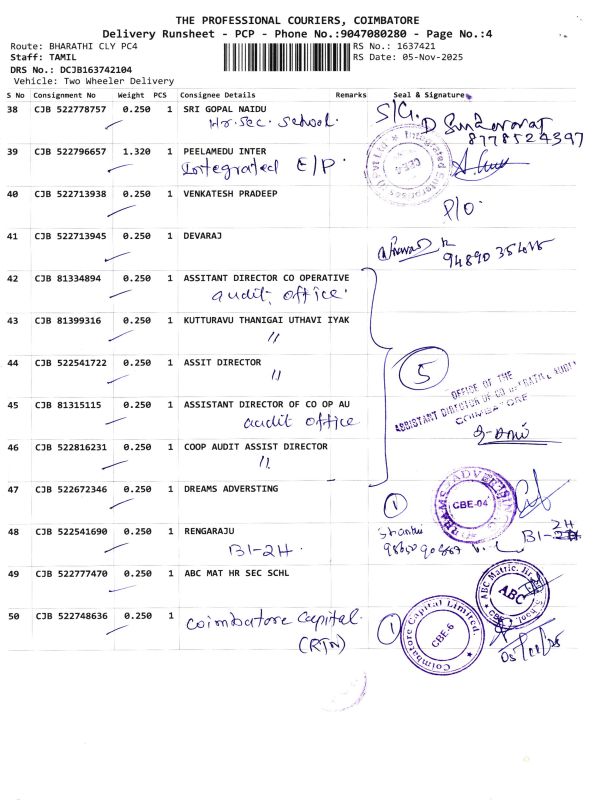 THE PROFESSIONAL COURIERS, COIMBATORE
Delivery Runsheet - PCP - Phone No.:9047080280 - Page No.:4
Route: BHARATHI CLY PC4 RS No.: 1637421
Staff: TAMIL RS Date: 05-Nov-2025
DRS No.: DCJB163742104
Vehicle: Two Wheeler Delivery
S No Consignment No Weight PCS Consignee Details Remarks Seal & Signature
38 CJB 522778757 0.250 1 SRI GOPAL NAIDU
Hr. Sec. School. S/G.
39 CJB 522796657 1.320 1 PEELAMEDU INTER
Integrated E/P.
40 CJB 522713938 0.250 1 VENKATESH PRADEEP
P/O.
41 CJB 522713945 0.250 1 DEVARAJ
42 CJB 81334894 0.250 1 ASSITANT DIRECTOR CO OPERATIVE
audit, office.
43 CJB 81399316 0.250 1 KUTTURAVU THANIGAI UTHAVI IYAK
"
44 CJB 522541722 0.250 1 ASSIT DIRECTOR
" 5
OFFICE OF THE
ASSISTANT DIRECTOR OF CO OPERATIVE AUDIT
COIMBATORE
45 CJB 81315115 0.250 1 ASSISTANT DIRECTOR OF CO OP AU
audit office
46 CJB 522816231 0.250 1 COOP AUDIT ASSIST DIRECTOR
"
47 CJB 522672346 0.250 1 DREAMS ADVERSTING
1 CBE-04
48 CJB 522541690 0.250 1 RENGARAJU
B1-2H. Shanthi B1-2H
49 CJB 522777470 0.250 1 ABC MAT HR SEC SCHL
ABC Matric. Hr. School ABC
50 CJB 522748636 0.250 1 Coimbatore Capital.
(RTN) 1 Coimbatore Capital Limited. CBE-6
05/11/25